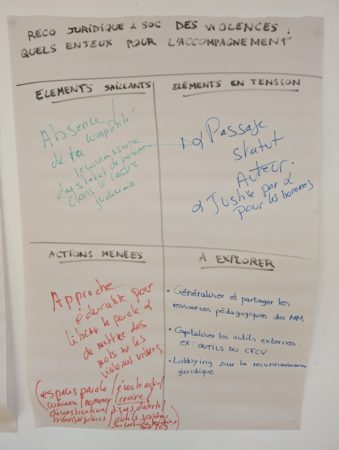 RECO JURIDIQUE & SOC DES VIOLENCES :
QUELS ENJEUX POUR L'ACCOMPAGNEMENT
ELEMENTS SAILLANTS
Absence
de la
reconnaissance
du statut de
dans le cadre
judiciaire.
ELEMENTS EN TENSION
Passage
statut
Auteur.
Justice par &
pour les hommes
ACTIONS MENÉES
Approche
éducable pour
libérer la parole &
de mettre des
mots sur les
violences
(espaces parole / écoute
nommer / croire /
déconstruction /
À EXPLORER
• Généraliser et partager les
ressources pédagogiques des MM
• Capitaliser les outils externes :
ex : OUTILS DU CFCV
• Lobbying sur la reconnaissance
juridique